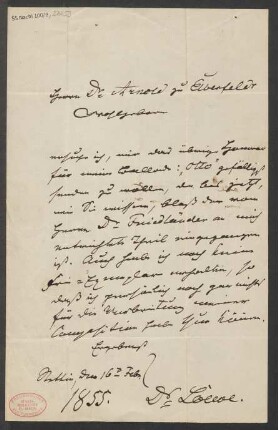 Herrn Dr Arnold zu Elberfeld
Wohlgeboren
ersuche ich, mir das übrige Honorar
für meine Ballade: „Otto“ gefälligst
senden zu wollen, da bis jetzt,
wie Sie wissen, blos der von
Herrn Dr Friedländer an mich
entrichtete Theil eingegangen
ist. Auch hab ich noch kein
Frei-Exemplar erhalten, so
daß ich persönlich noch gar nichts
für die Verbreitung meiner
Composition hab thun können.
Ergebenst
Stettin den 16t Febr
1855.
Dr Loewe.